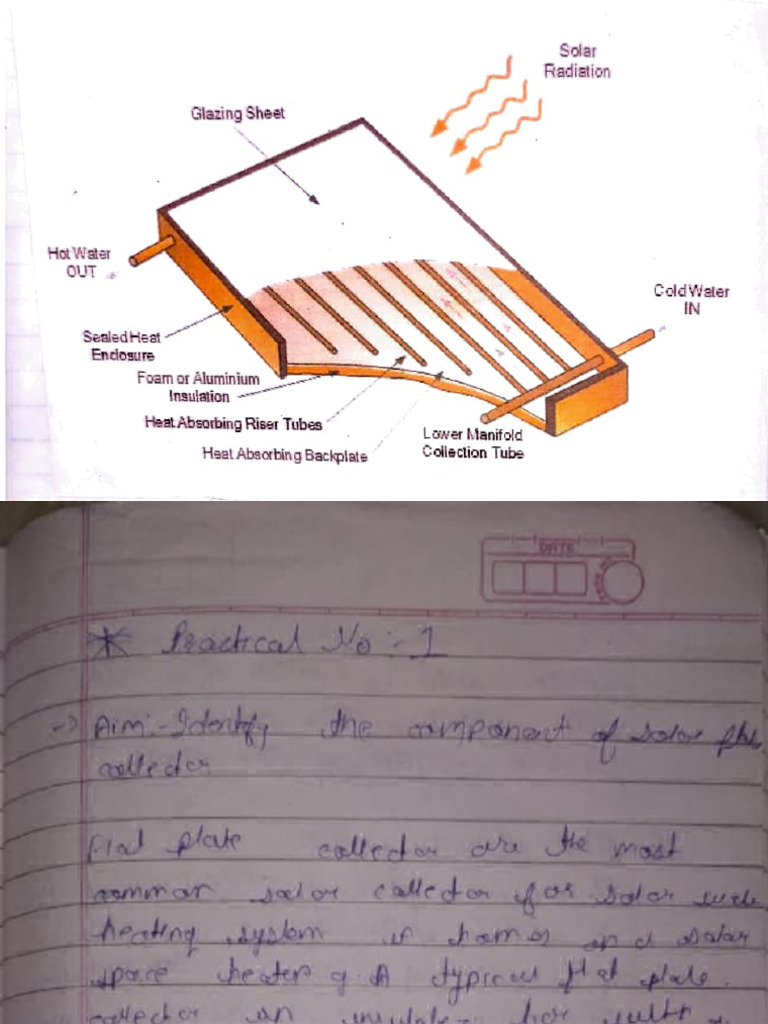 Solar
Radiation
Glazing Sheet
Hot Water
OUT
Cold Water
IN
Sealed Heat
Enclosure
Foam or Aluminium
Insulation
Heat Absorbing Riser Tubes
Heat Absorbing Backplate
Lower Manifold
Collection Tube
DATE
* Practical No :- 1
→ Aim:- Identify the component of solar
collector.
Flat plate collector are the most
common solar collector for solar
heating system in homes and solar
space heating A typical flat plate
collector an